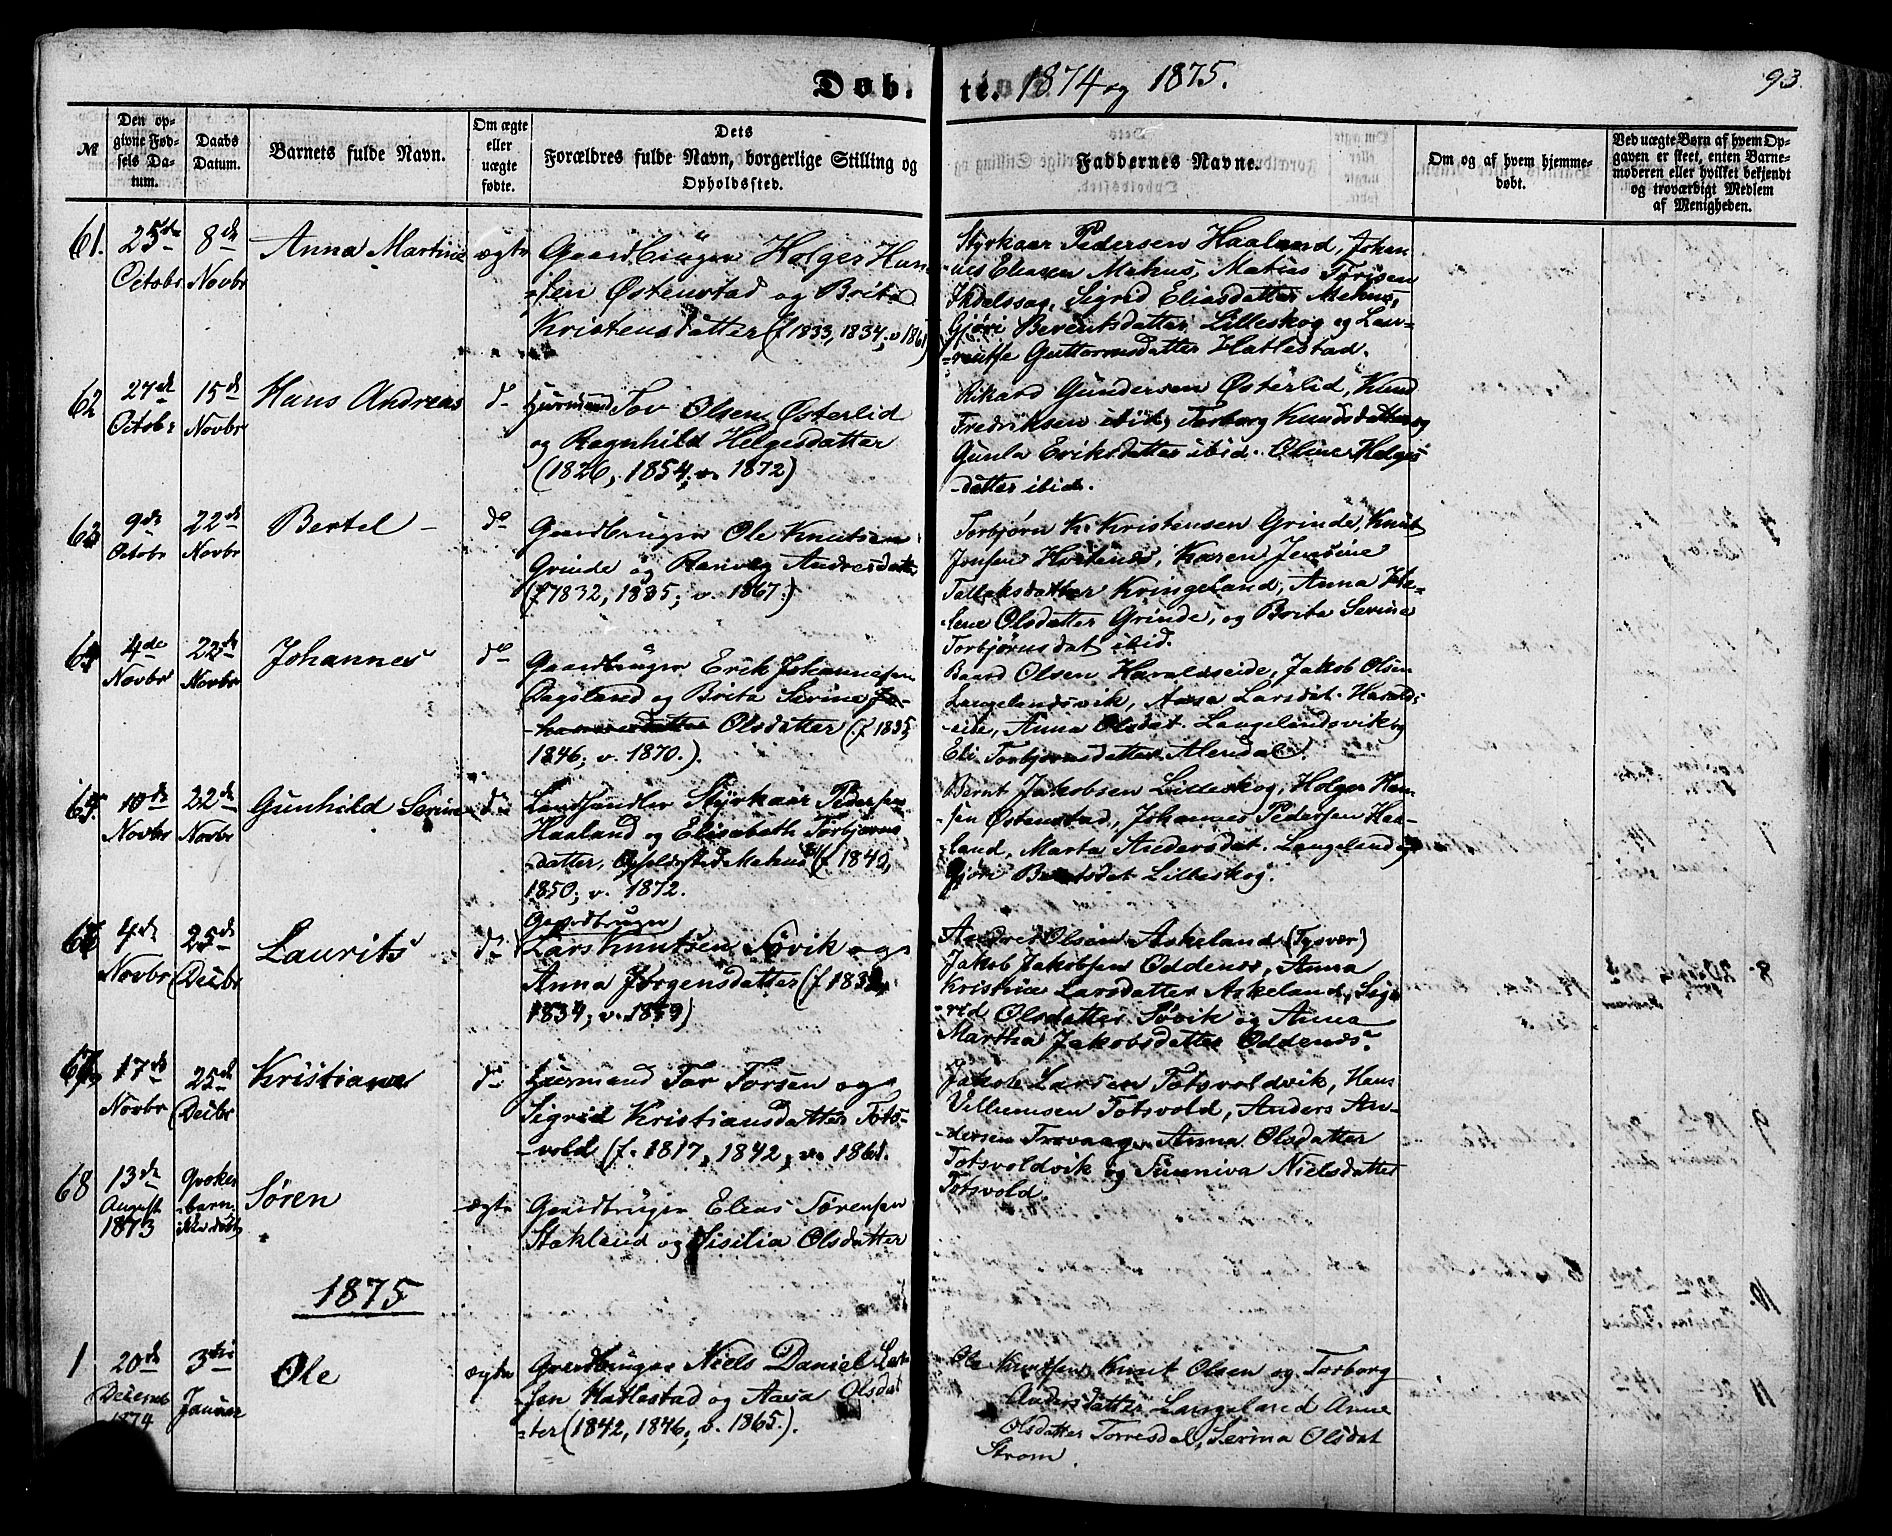 Døb-te. 1874 og 1875.
93.
№
Den opgivne Fødsels Datum.
Daabs Datum.
Barnets fulde Navn.
Om ægte eller uægte fødte.
Dets Forældres fulde Navn, borgerlige Stilling og Opholdssted.
Faddernes Navne.
Om og af hvem hjemmedøbt.
Ved uægte Børn af hvem Opgaven er skeet, enten Barnemoderen eller hvilket bekjendt og troværdigt Medlem af Menigheden.
61. 25de Octobr 8de Novbr Anna Martine ægte
Gaardbruger Holger Han
sen Østenstad og Brita
Kristensdatter (f 1833, 1834; v 1861)
Styrkaar Pedersen Haaland, Johan
nes Eliasen Mehus, Matias Torisen
Sigrid Eliasdatter Mehus,
Gjøri Berentsdatter Lilleskog og Lau-
Guttormsdatter Hatlestad.
62 27de Octobr 15de Novbr Hans Andreas do
Huusmand Tov Olsen Østerlid
og Ragnhild Helgesdatter
(1826, 1854; v. 1872)
Rikard Gundersen Østerlid, Knud
Fredriksen ibid, Torborg Knudsdatter og
Gunla Eriksdatter ibid. Oline Helges
datter ibid.
63 9de Octobr 22de Novbr Bertel - do
Gaardbruger Ole Knutsen
Grinde og Ranveg Andresdatter
(f 1832, 1835; v. 1867.)
Torbjørn K. Kristensen Grinde, Knut
Jensen Karen Jensine
Tallaksdatter Kringeland, Anna He-
lene Olsdatter Grinde, og Brita Serine
Torbjørnsdat ibid.
64 4de Novbr 22de Novbr Johannes do
Gaardbruger Erik Johannesen
Dagsland og Brita Serine Jo-
hannesdatter Olsdatter (f 1835,
1846; v. 1870.)
Baard Olsen Haraldseide, Jakob Olsen
Langelandsvik, Aasa Larsdat. Haralds-
eide, Anna Olsdat. Langelandsvik og
Eli Torbjørnsdatter Alendal.
65. 10de Novbr 22de Novbr Gunhild Serine do
Landhandler Styrkaar Pedersen
Haaland og Elisabeth Torbjørns
datter, Opholdssted Mehus (f 1842,
1850; v. 1872.
Bernt Jakobsen Lilleskog, Holger Han-
sen Østenstad, Johannes Pedersen Haa-
land, Marta Andersdat. Langeland og
Gjøri Berntsdat Lilleskog.
66 4de Novbr 25de Decbr Laurits do
Gaardbruger
Lars Knutsen Søvik og
Anna Jørgensdatter (f. 1832,
1834; v. 1859)
Andres Olsen Askeland (Tysvær)
Jakob Jakobsen Oddenes, Anna
Kristine Larsdatter Askeland, Sig-
rid Olsdatter Søvik og Anna
Martha Jakobsdatter Oddenes.
67 17de Novbr 25de Decbr Kristiane do
Huusmand Tov Torsen og
Sigrid Kristiansdatter Tots-
vold (f. 1817, 1842; v. 1861.
Jakob Larsen Totsvoldvik, Hans
Villumsen Totsvold, Anders An-
dersen Trovaag, Anna Olsdatter
Totsvoldvik og Sunniva Nielsdatter
Totsvold.
68 13de August 1873 Qvækerbarn ikke døbt Søren ægte
Gaardbruger Elias Sørensen
Stakland og Sisilia Olsdatter
1875
1 20de Decemb 1874 3die Januar Ole ægte
Gaardbruger Niels Daniel Lar
sen Hatlestad og Aasa Olsdat
ter (1842, 1846; v. 1865.).
Ole Knutsen, Knut Olsen og Torborg
Andersdatter Langeland Anne
Olsdatter Torresdal, Serina Olsdat
Strøm.